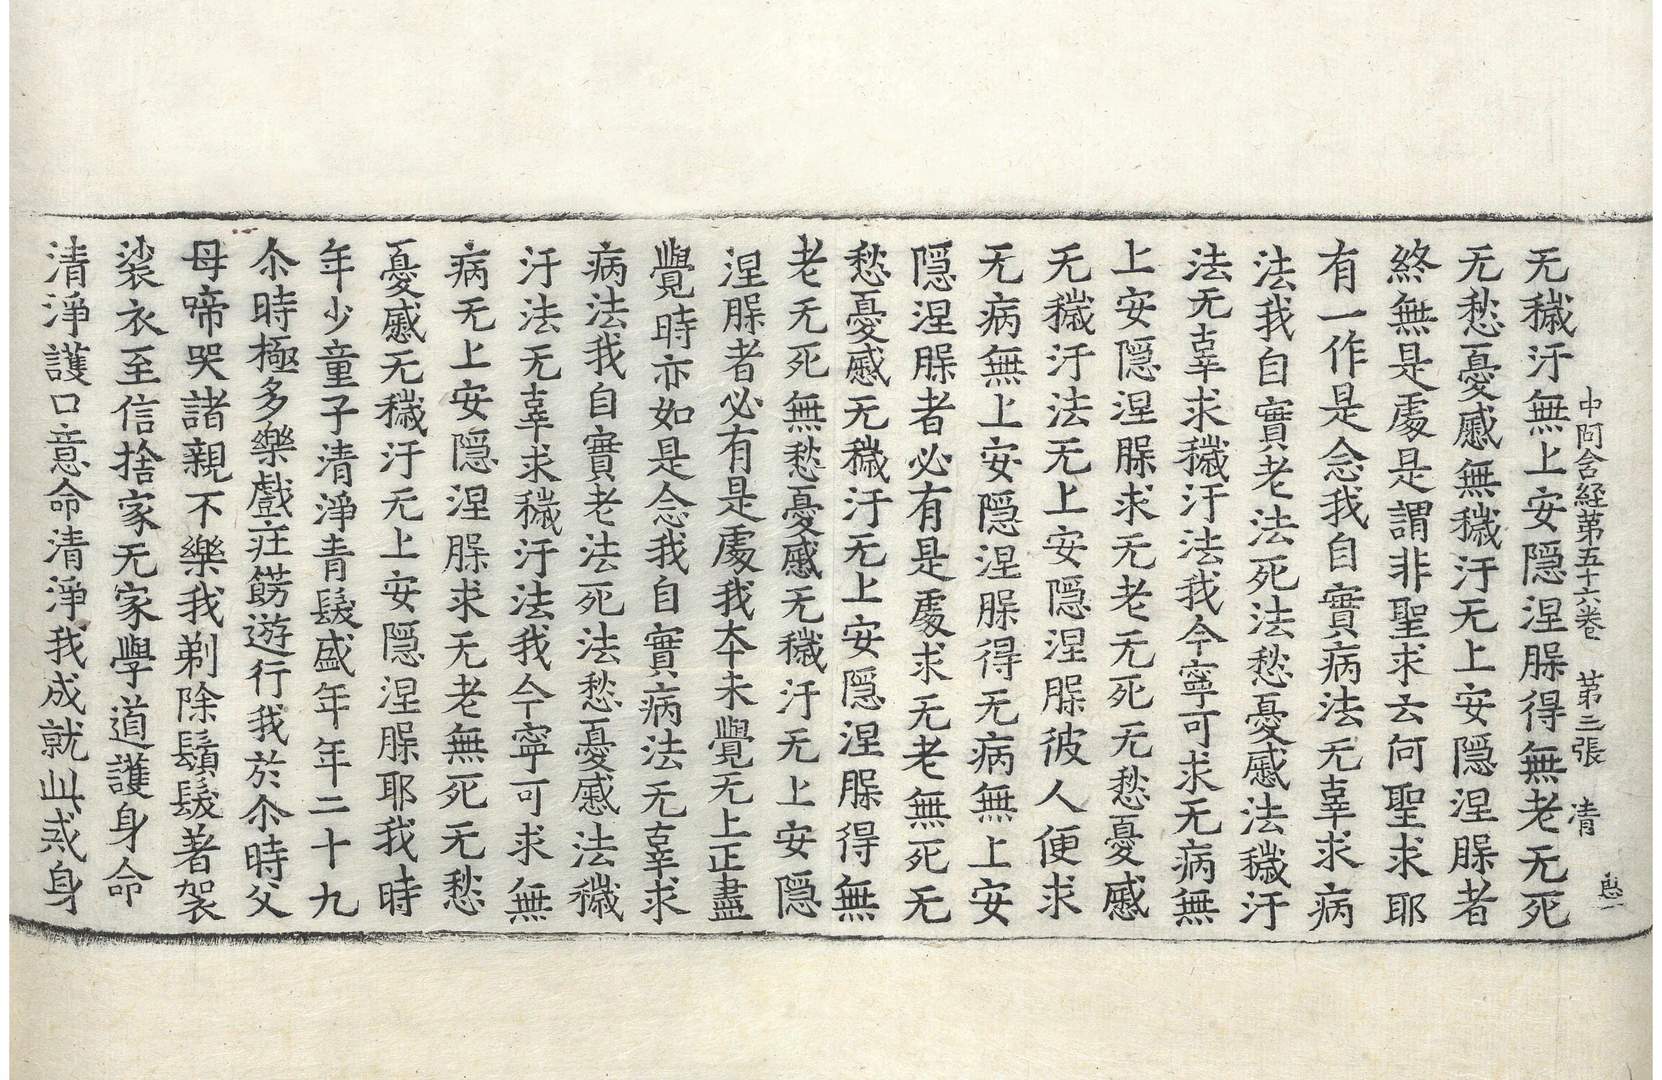 中阿含経第五十六卷 第三張 清
无穢汙無上安隠涅槃得無老无死
无愁憂慼無穢汙无上安隠涅槃者
終無是處是謂非聖求云何聖求耶
有一作是念我自實病法无辜求病
法我自實老法死法愁憂慼法穢汙
法无辜求穢汙法我今寧可求无病無
上安隠涅槃求无老无死无愁憂慼
无穢汙法无上安隠涅槃彼人便求
无病無上安隠涅槃得无病無上安
隠涅槃者必有是處求无老無死无
愁憂慼无穢汙无上安隠涅槃得無
老无死無愁憂慼无穢汙无上安隠
涅槃者必有是處我本未覺无上正盡
覺時亦如是念我自實病法无辜求
病法我自實老法死法愁憂慼法穢
汙法无辜求穢汙法我今寧可求無
病无上安隠涅槃求无老無死无愁
憂慼无穢汙无上安隠涅槃耶我時
年少童子清淨青髮盛年年二十九
尒時極多樂戲庄餝遊行我於尒時父
母啼哭諸親不樂我剃除鬚髮著袈
裟衣至信捨家无家學道護身命
清淨護口意命清淨我成就此戒身